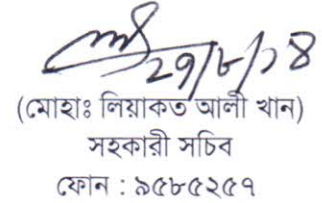 ২৭/৮/১৪
(মোহাঃ লিয়াকত আলী খান)
সহকারী সচিব
ফোন : ৯৫৮৫২৫৭